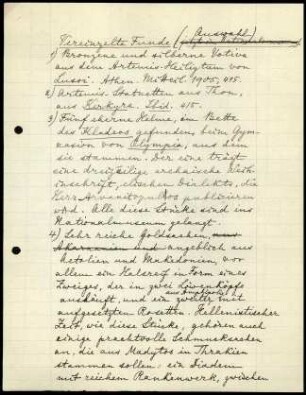 Vereinzelte Funde (Auswahl)
1) Bronzene und silberne Votive
aus dem Artemis-Heiligtum von
Lusoi. Athen. Mitteil. 1905, 415.
2) Artemis-Statuetten aus Thon,
aus Kerkyra, Ibid. 415.
3) Fünf eherne Helme, im Bette
des Kladeos gefunden, beim Gym-
nasion von Olympia, aus dem
sie stammen. Der eine trägt
eine dreizeilige archaische Weih-
inschrift, elischen Dialekts, die
Herr Arvanitopullos publicieren
wird. Alle diese Stücke sind ins
Nationalmuseum gelangt.
4) Sehr reiche Goldsachen, aus
Akarnanien und angeblich aus
Aetolien und Makedonien, vor
allem ein Halsreif in Form eines
Zweiges, der in zwei Löwenköpfe
ausläuft, und ein zweiter mit
aufgesetzten Rosetten. Hellenistischer
Zeit, wie diese Stücke, gehören auch
einige prachtvolle Schmucksachen
an, die aus Madytos in Thrakien
stammen sollen: ein Diadem
mit reichem Rankenwerk, zwischen